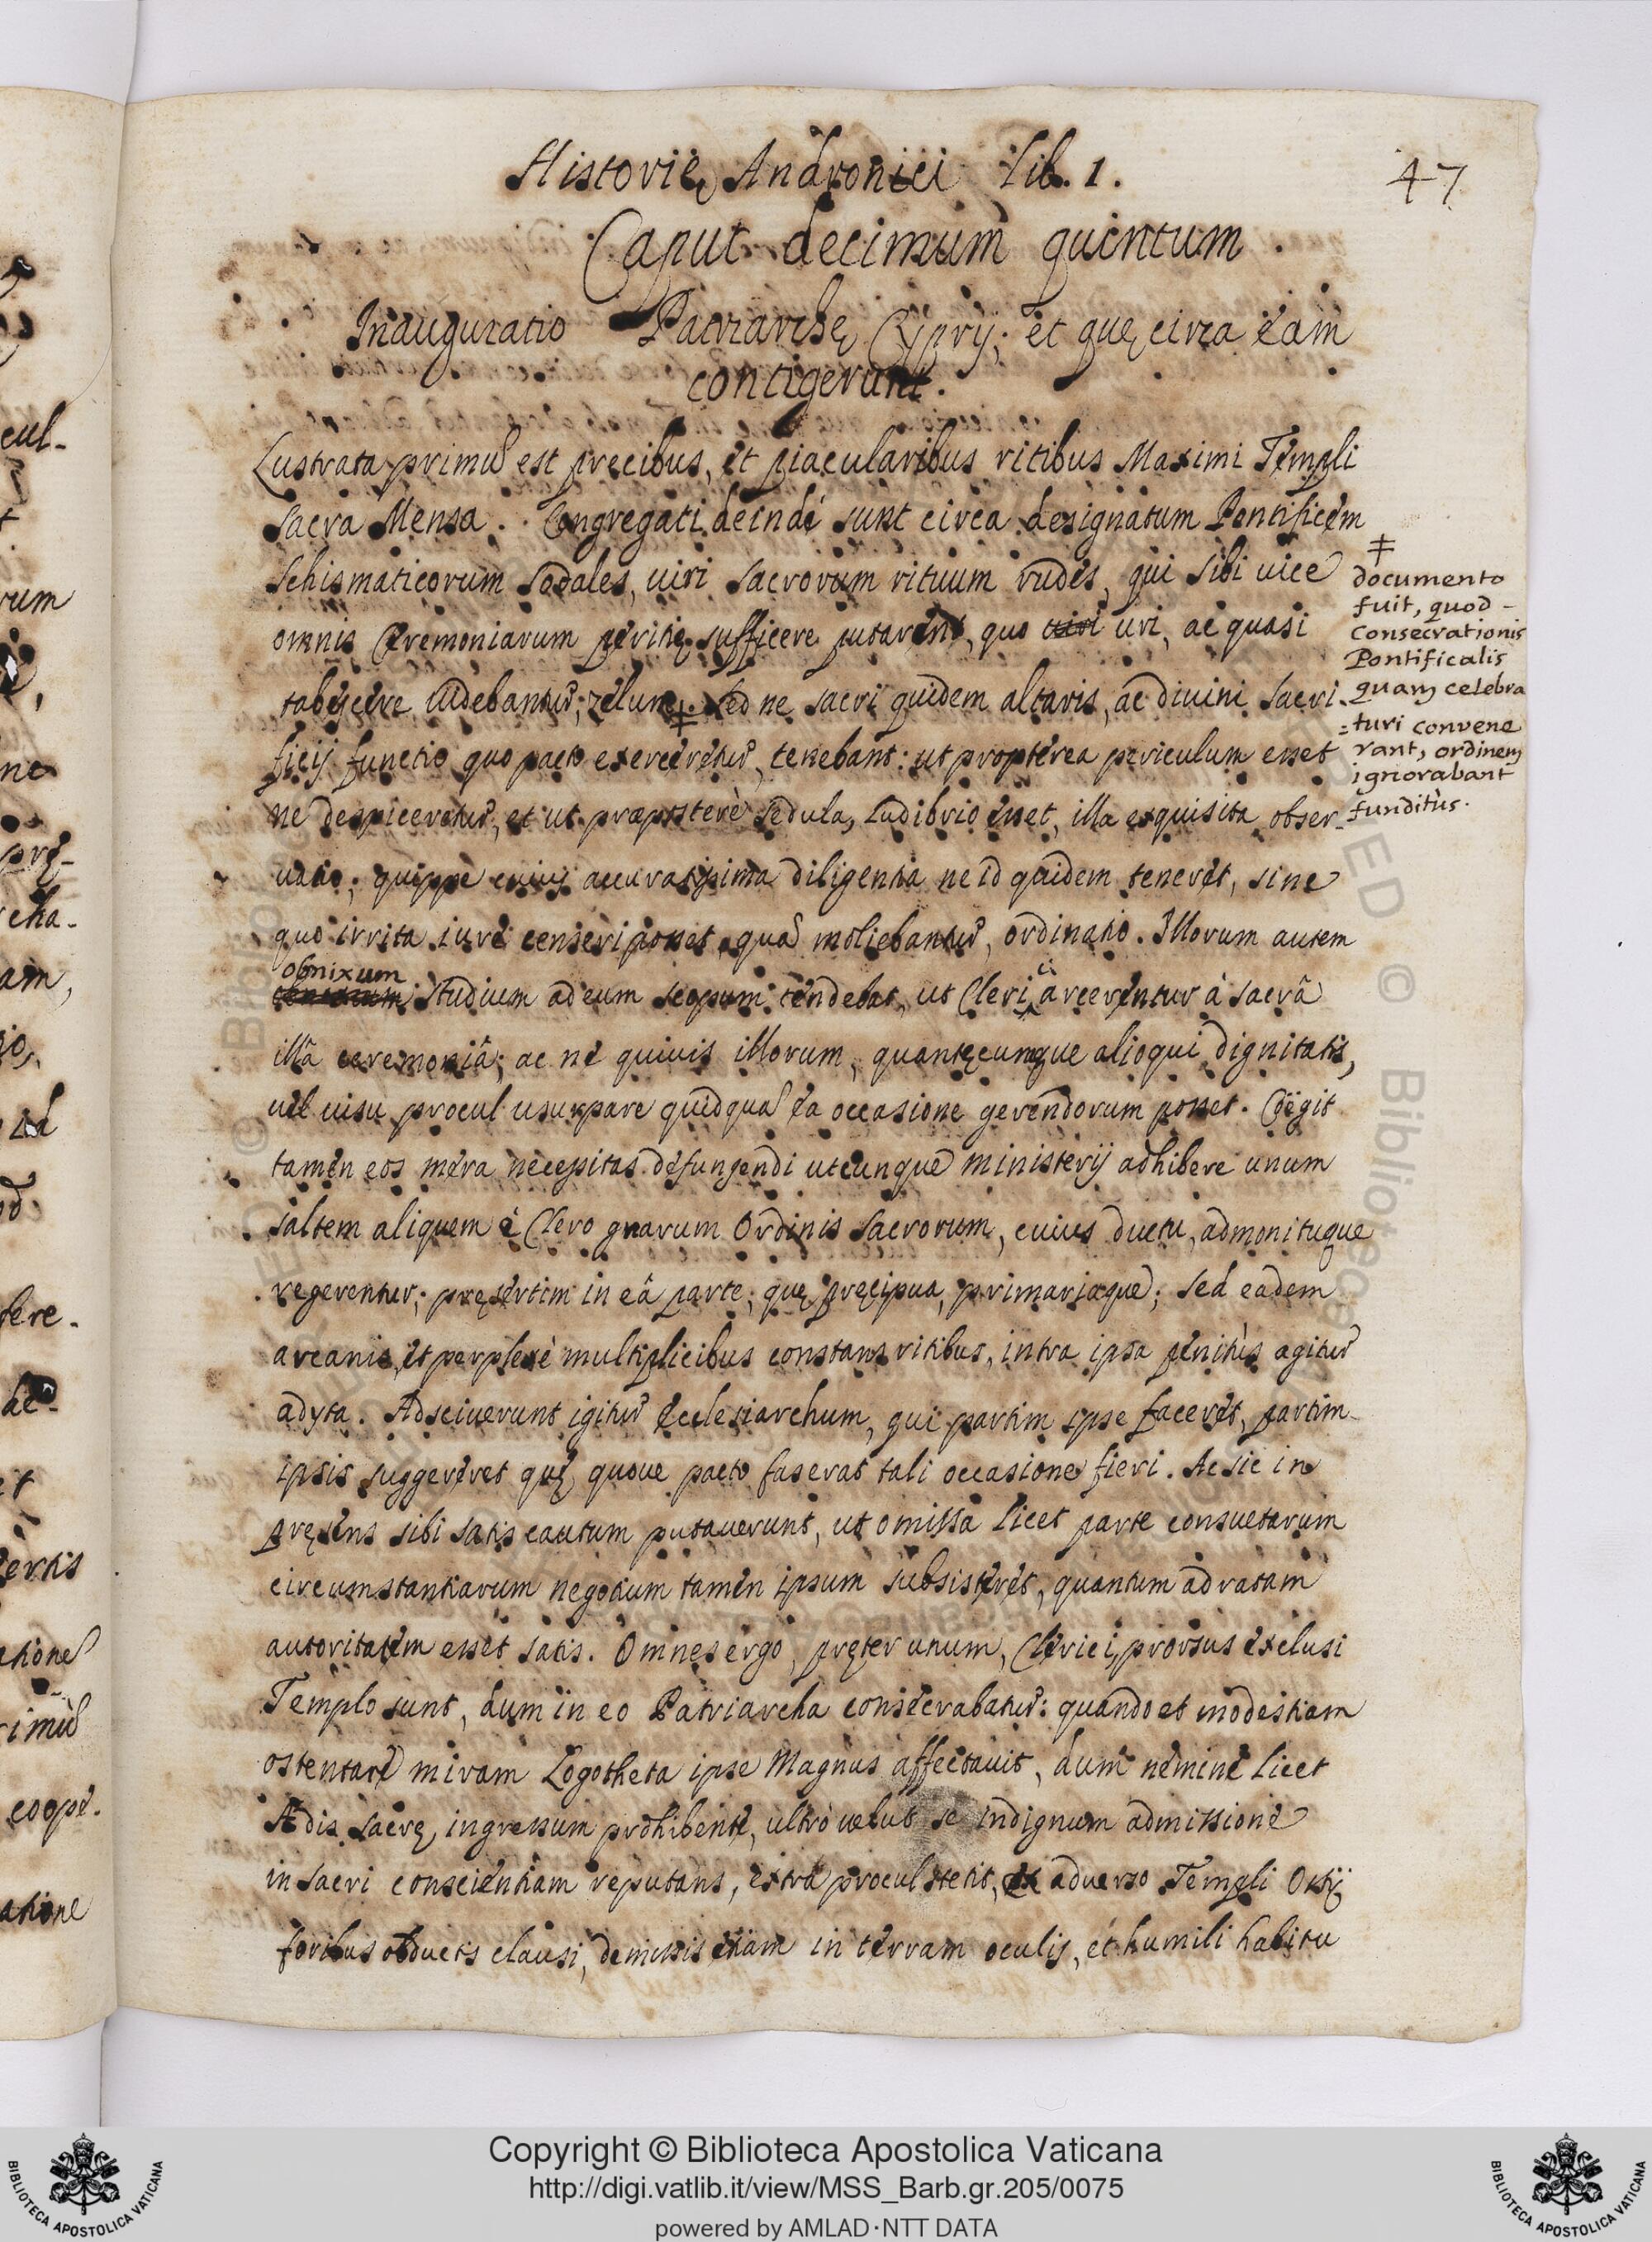 Historię Andronici Lib. 1.
47
Caput decimum quintum.
Inauguratio Patriarchę Cyprij; et quę circa eam
contigerunt.
Lustrata primùm est precibus, et piacularibus ritibus Maximi Templi
sacra Mensa. Congregati deindè sunt circa designatum Pontificem
Schismaticorum sodales, uiri sacrorum rituum rudes, qui sibi uice
omnis Ceremoniarum peritię sufficere putarent, quo uiri uri, ac quasi
tabescere uidebantur, zelum ‡. Sed ne sacri quidem altaris, ac diuini sacri-
ficij functio quo pacto exerceretur, tenebant: ut propterea periculum esset
ne despiceretur, et ut præposterè sedula, ludibrio esset, illa exquisita obser-
uatio; quippe cuius accuratissima diligentia ne id quidem teneret, sine
quo irrita iure censeri posset, quam moliebantur, ordinatio. Illorum autem
obnixum
studium ad eum scopum tendebat, ut Clerici arcerentur à sacrâ
illâ ceremoniâ; ac ne quiuis illorum, quantęcunque alioqui dignitatis,
uel uisu procul usurpare quidquam ea occasione gerendorum posset. Coëgit
tamen eos mera necessitas defungendi utcunque ministerij adhibere unum
saltem aliquem è Clero gnarum Ordinis sacrorum, cuius ductu, admonituque
regerentur; pręsertim in eâ parte, quę pręcipua, primariaque; sed eadem
arcanis, et perplexè multiplicibus constans ritibus, intra ipsa penitùs agitur
adyta. Adsciuerunt igitur Ecclesiarchum, qui partim ipse faceret, partim
ipsis suggereret quę, quoue pacto fas erat tali occasione fieri. Ac sic in
pręsens sibi satis cautum putauerunt, ut omissa licet parte consuetarum
circumstantiarum negotium tamen ipsum subsisteret, quantum ad ratam
autoritatem esset satis. Omnes ergo, pręter unum, Clerici, prorsus exclusi
Templo sunt, dum in eo Patriarcha consecrabatur: quando et modestiam
ostentare miram Logotheta ipse Magnus affectauit, dum nemine licet
Ædis sacrę ingressum prohibente, ultrò uelut se indignum admissione
in sacri conscientiam reputans, extra procul stetit, ex aduerso Templi Ostij
foribus obductis clausi, demissis etiam in terram oculis, et humili habitu
‡
documento
fuit, quod
Consecrationis
Pontificalis
quam celebra
=turi convene
rant, ordinem
ignorabant
funditùs.
Copyright © Biblioteca Apostolica Vaticana
http://digi.vatlib.it/view/MSS_Barb.gr.205/0075
powered by AMLAD·NTT DATA
BIBLIOTECA APOSTOLICA VATICANA
BIBLIOTECA APOSTOLICA VATICANA